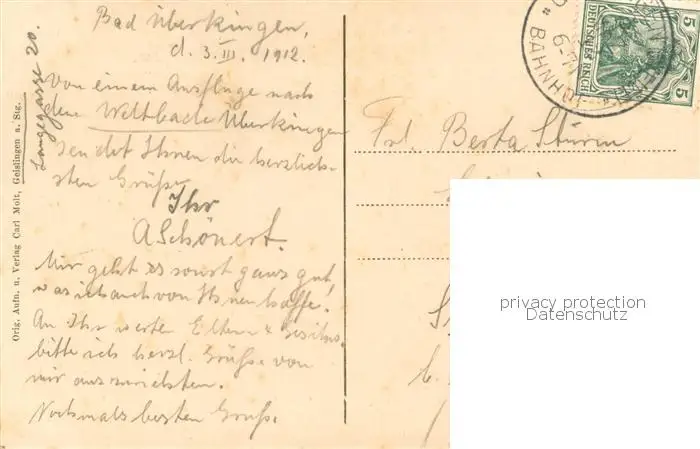 Bad Überkingen,
d. 3. III. 1912.
Von einem Ausfluge nach
dem Weltbade Überkingen
sendet Ihnen die herzlich-
sten Grüße
Ihr
A Schönert.
Mir geht es sonst ganz gut,
was ich auch von Ihnen hoffe!
An Ihr werten Eltern &
bitte ich herzl. Grüße von
mir auszurichten.
Nochmals besten Gruß.
Langegasse 20.
Orig. Aufn. u. Verlag Carl Molt, Geislingen a. Stg.
Frl. Berta Sturm
DEUTSCHES REICH
5
5
BAHNHOF
privacy protection
Datenschutz